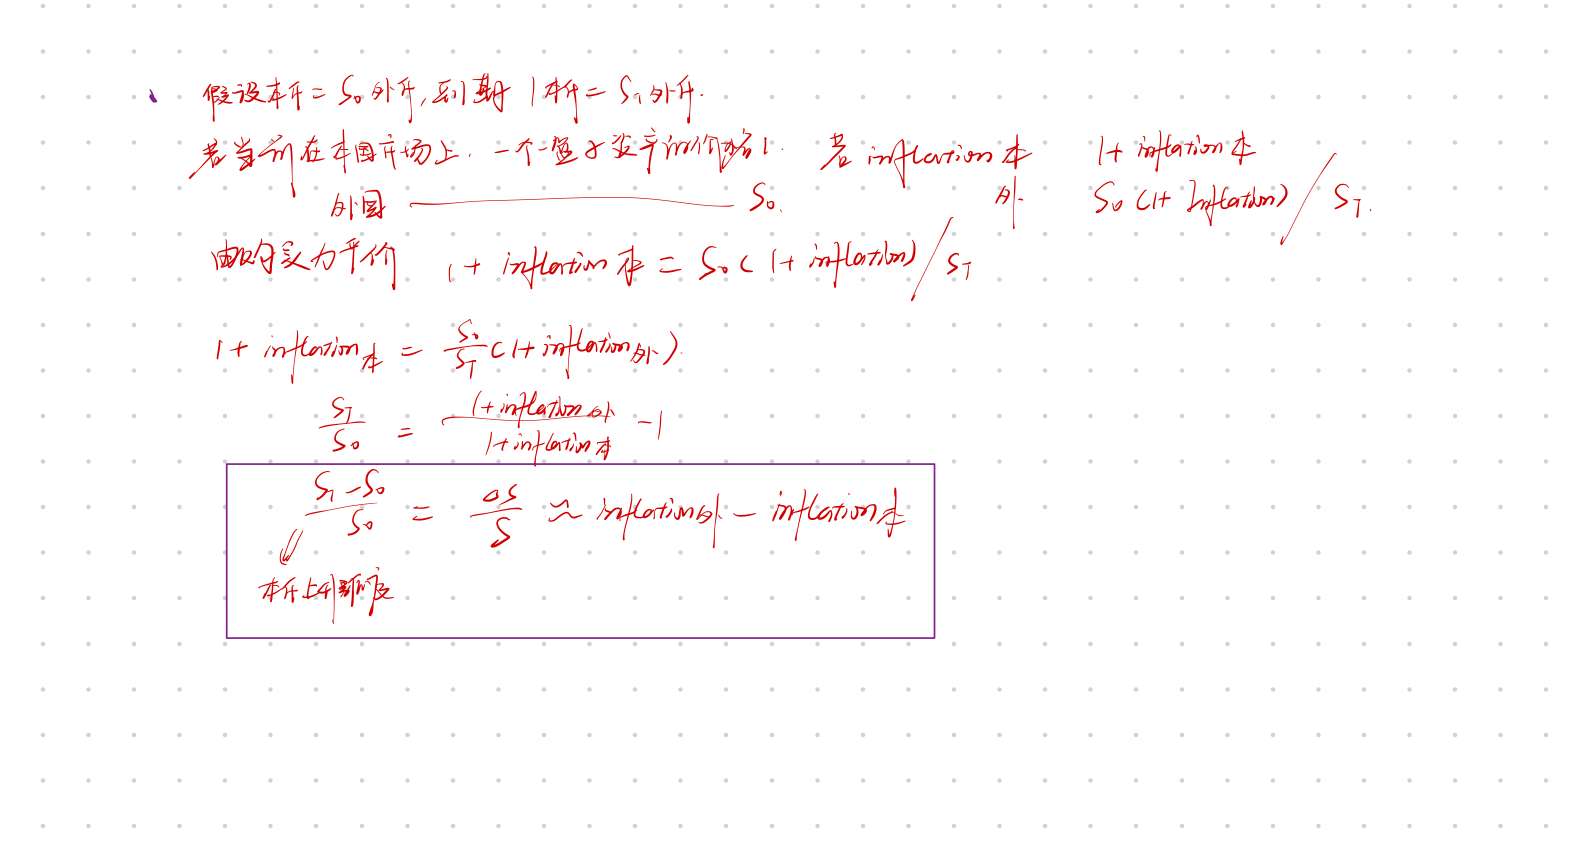 假设本币 = S₀ 外币, 到期 1本币 = S_T 外币.
若当前在本国市场上. 一个一篮子资产的价格1. 若 inflation 本 1+ inflation 本
外国 —— S₀. 外 S₀ (1+ Inflation) / S_T.
由购买力平价 1+ inflation 本 = S₀ ( 1+ inflation) / S_T
1+ inflation本 = S₀/S_T (1+ inflation外).
S_T/S₀ = (1+inflation外)/(1+inflation本) -1
(S_T - S₀)/S₀ = ΔS/S ≈ inflation外 - inflation本
本币上升幅度